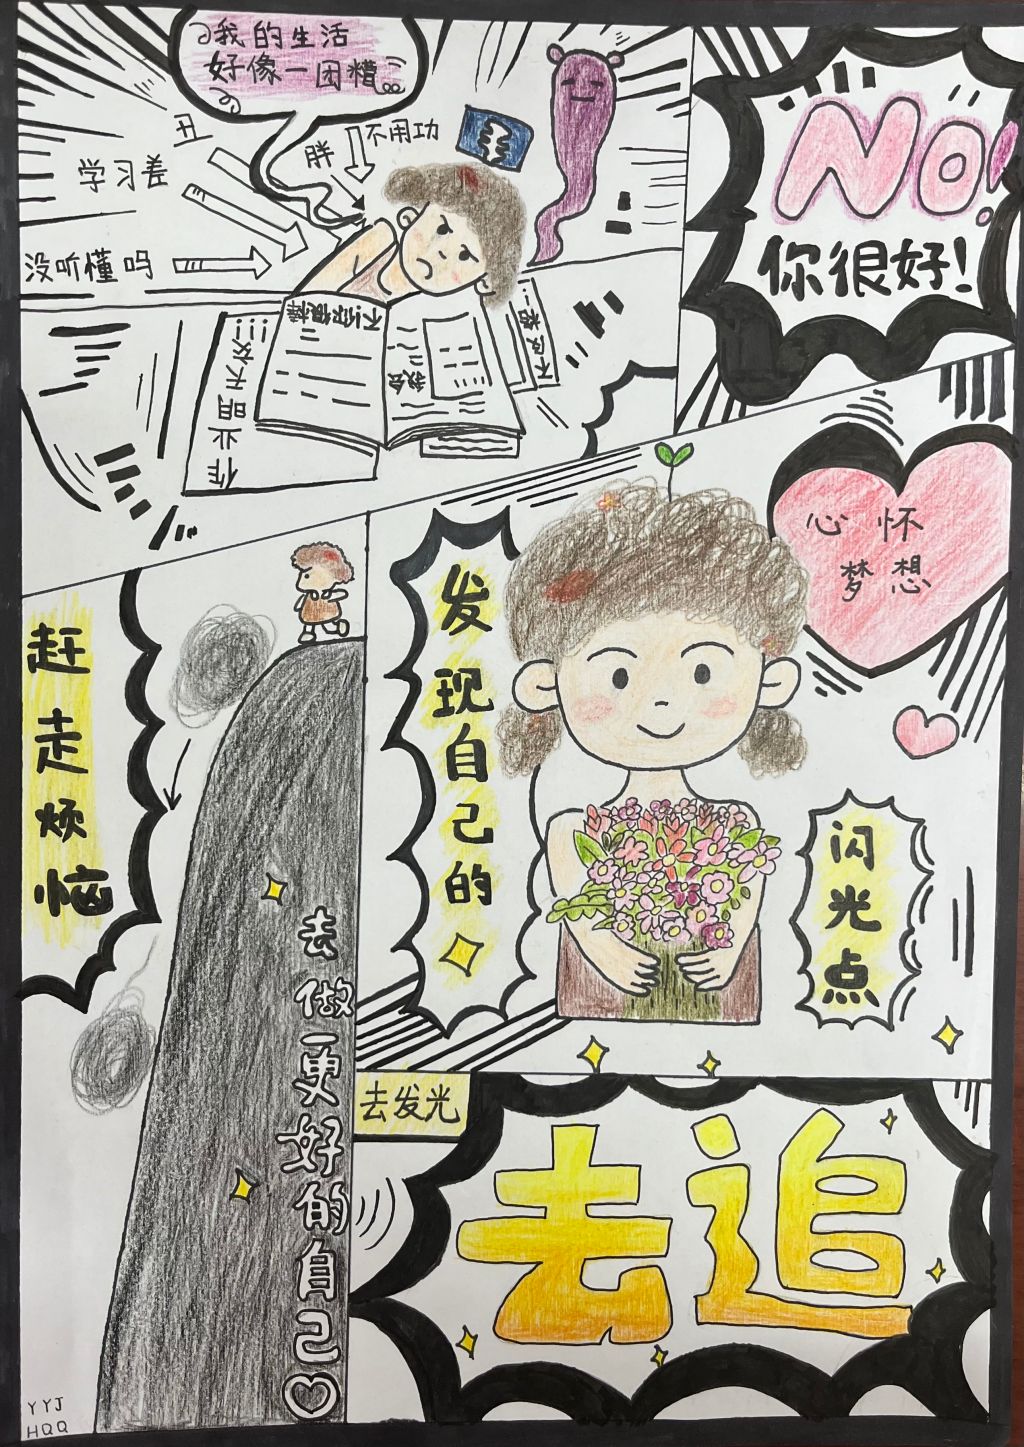 我的生活
好像一团糟
丑
不用功
胖
学习差
没听懂吗
不及格
作业明天交
NO!
你很好!
心怀
梦想
发现自己的
闪光点
赶走烦恼
去做一更好的自己
去发光
去追
YYJ
HQQ